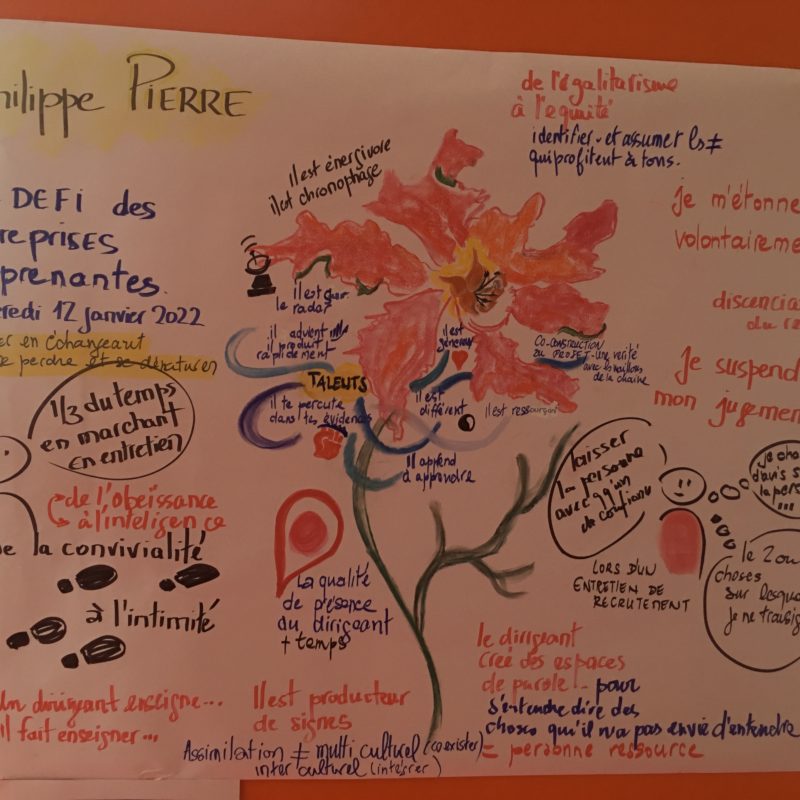 hilippe PIERRE
DEFI des
reprises
prenantes.
credi 12 janvier 2022
er en échangeant
se perdre et se dénaturer
1/3 du temps
en marchant
en entretien
de l'obeissance
à l'inteligence
de la convivialité
à l'intimité
Un dirigeant enseigne...
il fait enseigner...
Il est énergivore
il est chronophage
il est sur
le radar
il advient
il produit
rapidement
TALENTS
il te percute
dans tes évidences
il est
généreux
il est
différent
il est ressourçant
Il apprend
à apprendre
CO-CONSTRUCTION
DU PROJET - Une vérité
avec les maillons
de la chaine
de l'égalitarisme
à l'equité
identifier - et assumer les ≠
qui profitent à tous.
je m'étonne
volontaireme
Je suspend
mon jugemen
laisser
la personne
avec
de confiance
LORS D'UN
ENTRETIEN DE
RECRUTEMENT
je cha
d'avis s
la pers
...
le 2 ou
choses
sur lesque
je ne transig
La qualité
de présence
du dirigeant
+ temps
Il est producteur
de signes
le dirigeant
créé des espaces
de parole! - pour
s'entendre dire des
choses qu'il n'a pas envie d'entendre
= personne ressource
Assimilation ≠ multi culturel (coexister)
inter culturel (intégrer)